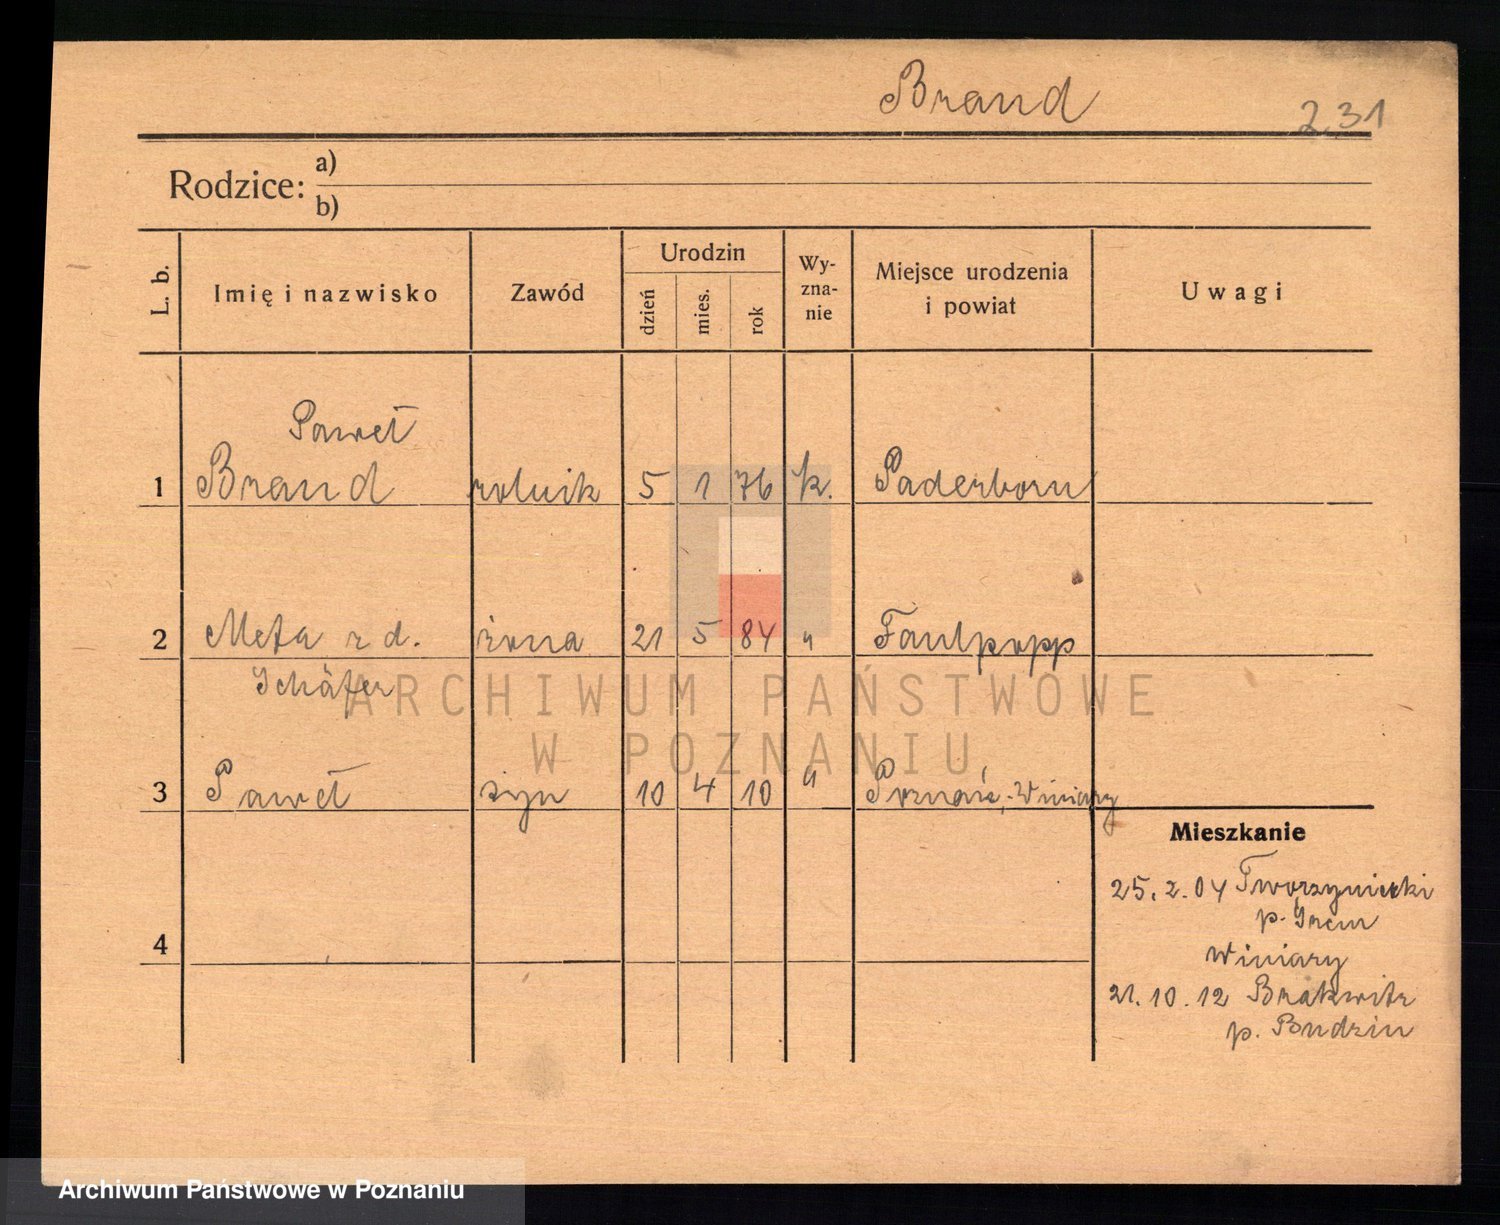 Brand
2.31
Rodzice: a)
b)
L. b. Imię i nazwisko Zawód Urodzin dzień mies. rok Wy-zna-nie Miejsce urodzenia i powiat Uwagi
Paweł
1 Brand rolnik 5 1 76 k. Paderborn
2 Meta z d. żona 21 5 84 " Faulpopp
Schäfer
ARCHIWUM PAŃSTWOWE
W POZNANIU
3 Paweł syn 10 4 10 " Poznań, -Winiary
Mieszkanie
25.2.04 Tworzymirki
p. Śrem
4
Winiary
21.10.12 Brakwitz
p. Budzin
Archiwum Państwowe w Poznaniu